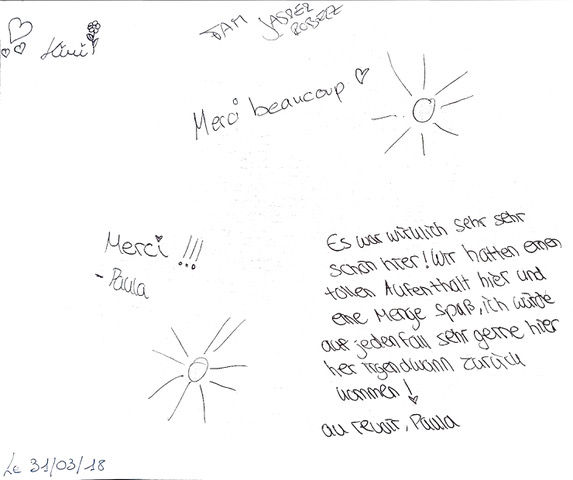 FAM JASPER
ROBERZ
Kiwi
Merci beaucoup
Merci !!!
- Paula
Es war wirklich sehr sehr
schön hier! Wir hatten einen
tollen Aufenthalt hier und
eine Menge Spaß, ich würde
auf jedenfall sehr gerne hier
her irgendwann zurück
kommen!
au revoir, Paula
Le 31/03/18